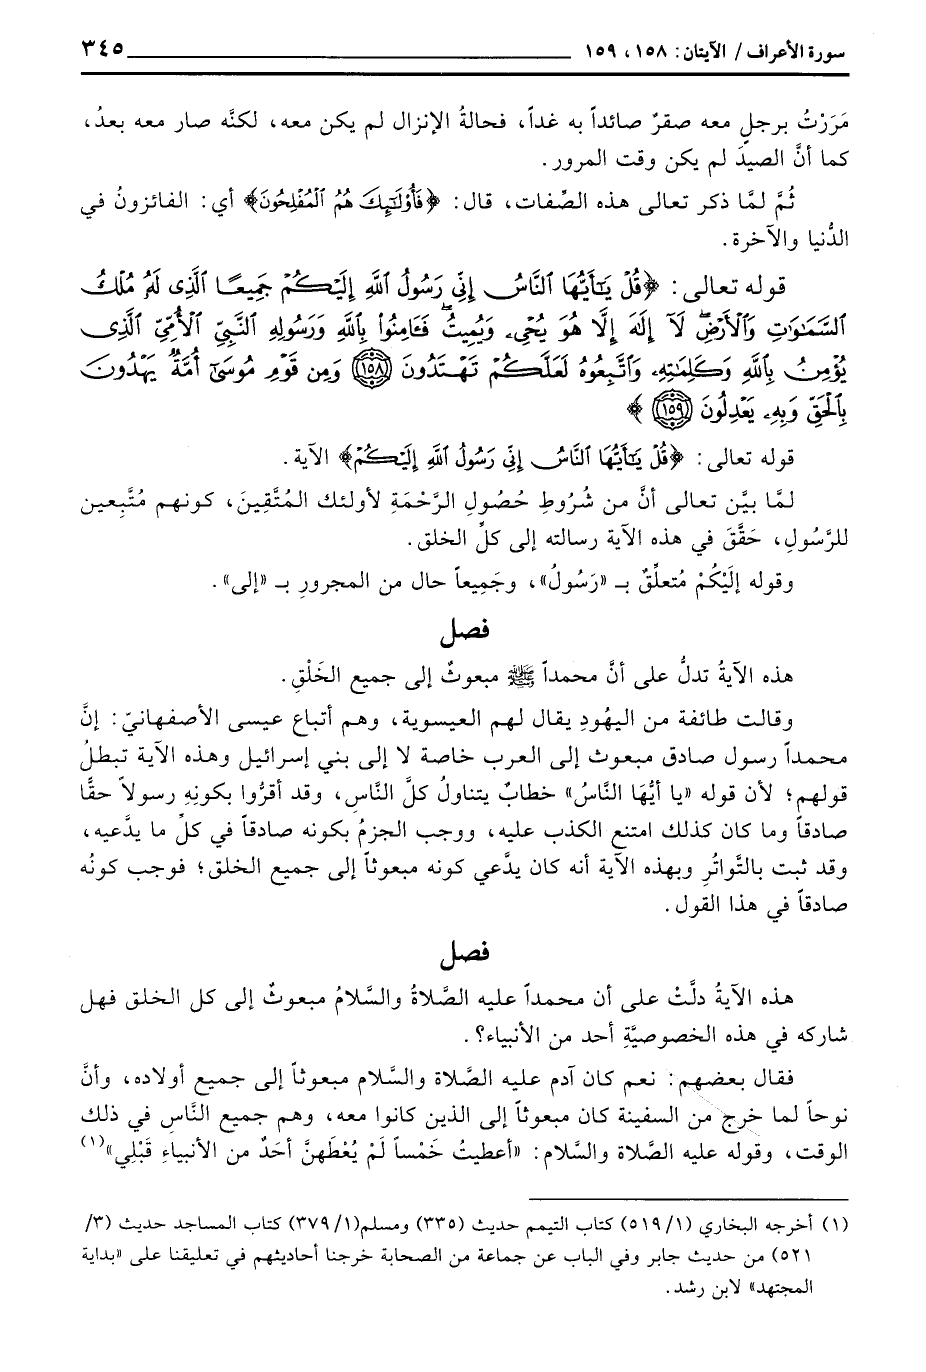 سورة الأعراف / الآيتان: ١٥٨، ١٥٩ ٣٤٥
مَرَرْتُ برجلٍ معه صقرٌ صائداً به غداً، فحالةُ الإنزال لم يكن معه، لكنَّه صار معه بعدُ،
كما أنَّ الصيدَ لم يكن وقت المرور.
ثُمَّ لمَّا ذكر تعالى هذه الصِّفات، قال: ﴿فَأُوْلَٰٓئِكَ هُمُ ٱلْمُفْلِحُونَ﴾ أي: الفائزونُ في
الدُّنيا والآخرة.
قوله تعالى: ﴿قُلْ يَٰٓأَيُّهَا ٱلنَّاسُ إِنِّى رَسُولُ ٱللَّهِ إِلَيْكُمْ جَمِيعًا ٱلَّذِى لَهُۥ مُلْكُ
ٱلسَّمَٰوَٰتِ وَٱلْأَرْضِۖ لَآ إِلَٰهَ إِلَّا هُوَ يُحْىِۦ وَيُمِيتُۖ فَـَٔامِنُواْ بِٱللَّهِ وَرَسُولِهِ ٱلنَّبِىِّ ٱلْأُمِّىِّ ٱلَّذِى
يُؤْمِنُ بِٱللَّهِ وَكَلِمَٰتِهِۦ وَٱتَّبِعُوهُ لَعَلَّكُمْ تَهْتَدُونَ ١٥٨ وَمِن قَوْمِ مُوسَىٰٓ أُمَّةٌ يَهْدُونَ
بِٱلْحَقِّ وَبِهِۦ يَعْدِلُونَ ١٥٩﴾
قوله تعالى: ﴿قُلْ يَٰٓأَيُّهَا ٱلنَّاسُ إِنِّى رَسُولُ ٱللَّهِ إِلَيْكُمْ﴾ الآية.
لمَّا بيَّن تعالى أنَّ من شُرُوطِ حُصُولِ الرَّحْمَةِ لأولئك المُتَّقِينَ، كونهم مُتَّبِعين
للرَّسُولِ، حَقَّقَ في هذه الآية رسالته إلى كلِّ الخلق.
وقوله إِلَيْكُمْ مُتعلِّقٌ بـ «رَسُولُ»، وجَمِيعاً حال من المجرورِ بـ «إلى».
فصل
هذه الآيةُ تدلُّ على أنَّ محمداً ﷺ مبعوثٌ إلى جميع الخَلْقِ.
وقالت طائفة من اليهُودِ يقال لهم العيسوية، وهم أتباع عيسى الأصفهانيّ: إنَّ
محمداً رسول صادق مبعوث إلى العرب خاصة لا إلى بني إسرائيل وهذه الآية تبطلُ
قولهم؛ لأن قوله «يا أيُّهَا النَّاسُ» خطابٌ يتناولُ كلَّ النَّاسِ، وقد أقرُّوا بكونِهِ رسولاً حقًّا
صادقاً وما كان كذلك امتنع الكذب عليه، ووجب الجزمُ بكونه صادقاً في كلِّ ما يدَّعيه،
وقد ثبت بالتَّواتُرِ وبهذه الآية أنه كان يدَّعي كونه مبعوثاً إلى جميع الخلق؛ فوجب كونُه
صادقاً في هذا القول.
فصل
هذه الآيةُ دلَّتْ على أن محمداً عليه الصَّلاةُ والسَّلامُ مبعوثٌ إلى كل الخلق فهل
شاركه في هذه الخصوصيَّةِ أحد من الأنبياء؟.
فقال بعضهم: نعم كان آدم عليه الصَّلاة والسَّلام مبعوثاً إلى جميع أولاده، وأنَّ
نوحاً لما خرج من السفينة كان مبعوثاً إلى الذين كانوا معه، وهم جميع النَّاسِ في ذلك
الوقت، وقوله عليه الصَّلاة والسَّلام: «أعطيتُ خَمْساً لَمْ يُعْطَهنَّ أحَدٌ من الأنبياءِ قَبْلِي»(١)
(١) أخرجه البخاري (١/ ٥١٩) كتاب التيمم حديث (٣٣٥) ومسلم(١/ ٣٧٩) كتاب المساجد حديث (٣/
٥٢١) من حديث جابر وفي الباب عن جماعة من الصحابة خرجنا أحاديثهم في تعليقنا على «بداية
المجتهد» لابن رشد.